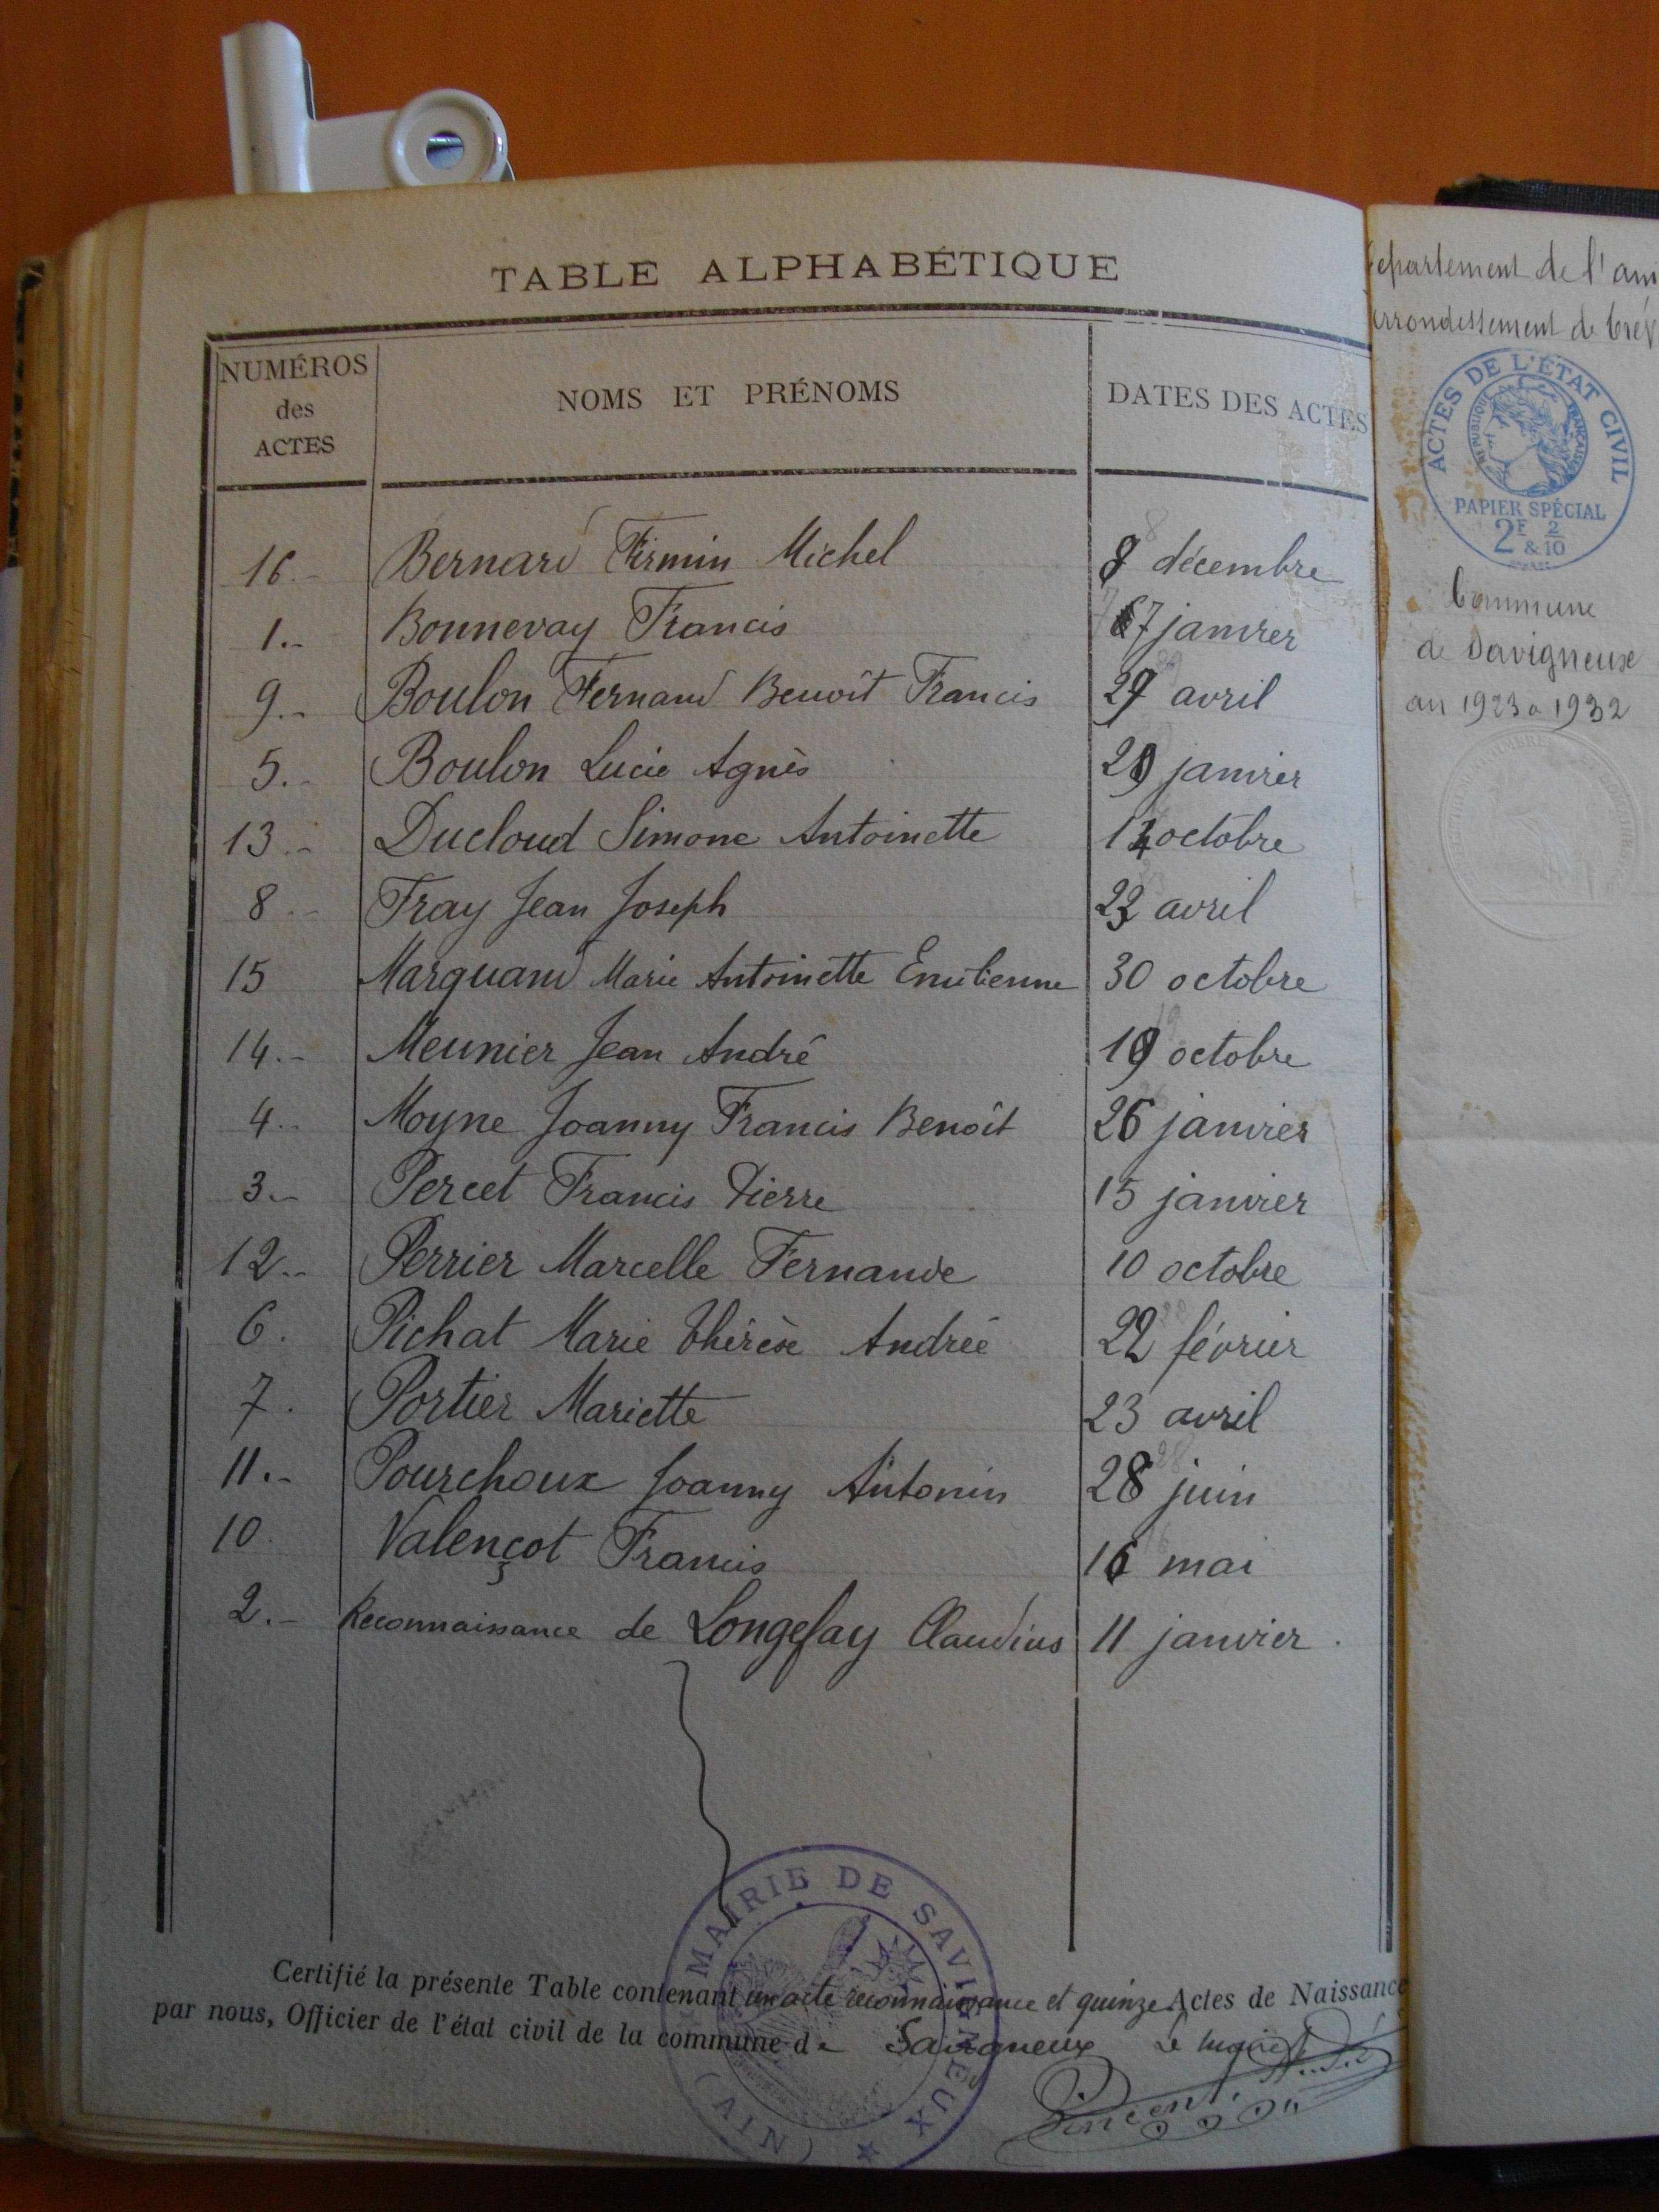 TABLE ALPHABÉTIQUE
NUMÉROS des ACTES NOMS ET PRÉNOMS DATES DES ACTES
16.- Bernard Firmin Michel 8 décembre
1.- Bonnevay Francis 7 janvier
9.- Boulon Fernand Benoît Francis 29 avril
5.- Boulon Lucie Agnès 29 janvier
13.- Ducloud Simone Antoinette 14 octobre
8.- Fray Jean Joseph 23 avril
15 Marquand Marie Antoinette Emilienne 30 octobre
14.- Meunier Jean André 19 octobre
4.- Moyne Joanny Francis Benoît 26 janvier
3.- Percet Francis Pierre 15 janvier
12.- Perrier Marcelle Fernande 10 octobre
6. Pichat Marie Thérèse Andrée 22 février
7. Portier Mariette 23 avril
11.- Pourchoux Joanny Antonin 28 juin
10. Valençot Francis 16 mai
2.- Reconnaissance de Longefay Claudius 11 janvier.
Certifié la présente Table contenant un acte reconnaissance et quinze Actes de Naissance
par nous, Officier de l'état civil de la commune de Savigneux Le maire
Vincent
MAIRIE DE SAVIGNEUX
(AIN)
epartement de l'ain
arrondissement de Trév
ACTES DE L'ÉTAT CIVIL
RÉPUBLIQUE FRANÇAISE
PAPIER SPÉCIAL
2F 2
&10
Commune
de Savigneux
an 1923 a 1932